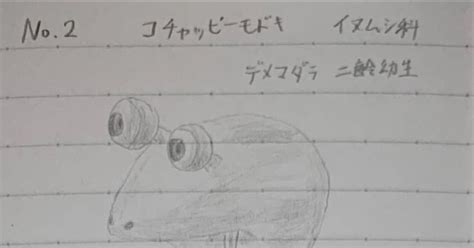 No.2 コチャッピーモドキ イヌムシ科
デメマダラ 二齢幼生